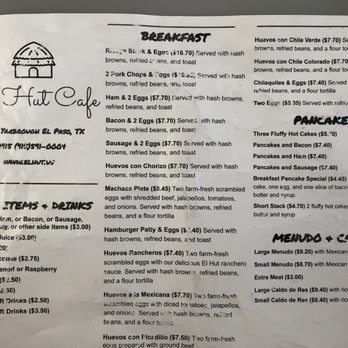 Hut Cafe
Yarbrough El Paso, TX
915 (915)591-0004
www.elhut.us
Items + Drinks
Ham, or Bacon, or Sausage,
or other side items ($3.00)
Juice ($3.00)
($2.75)
or Raspberry
($2.50)
ft Drinks ($2.50)
ft Drinks ($3.50)
Breakfast
Steak & Eggs Served with hash
browns, refried beans, and toast
2 Pork Chops & Eggs Served with hash
browns, refried beans, and toast
Ham & 2 Eggs ($7.70) Served with hash browns,
refried beans, and toast
Bacon & 2 Eggs ($7.70) Served with hash
browns, refried beans, and toast
Sausage & 2 Eggs ($7.70) Served with hash
browns, refried beans, and toast
Huevos con Chorizo ($7.70) Served with hash
browns, refried beans, and toast
Machaca Plate ($8.45) Two farm-fresh scrambled
eggs with shredded beef, jalapeños, tomatoes,
and onions. Served with hash browns, refried
beans, and a flour tortilla
Hamburger Patty & Eggs Served with
hash browns, refried beans, and toast
Huevos Rancheros ($7.40) Two farm-fresh
scrambled eggs with our delicious El Hut ranchero
sauce. Served with hash browns, refried beans,
and a flour tortilla
Huevos a la Mexicana ($7.70) Two farm-fresh
scrambled eggs with diced tomatoes, jalapeños,
and onions. Served with hash browns, refried
beans, and a flour tortilla
Huevos con Picadillo ($7.50) Two farm-fresh
eggs prepared with ground beef
Huevos con Chile Verde ($7.70) S
browns, refried beans, and a flour tor
Huevos con Chile Colorado ($7.70)
browns, refried beans, and a flour tor
Chilaquiles & Eggs ($7.40) Served w
refried beans, and a flour tortilla
Two Eggs ($5.35) Served with refried
Pancake
Three Fluffy Hot Cakes ($5.70)
Pancakes and Bacon ($7.40)
Pancakes and Ham ($7.40)
Pancakes and Sausage
Breakfast Pancake Special ($4.45)
cake, one egg, and one slice of bacon
butter and syrup
Short Stack ($4.70) 2 fluffy hot cakes
butter and syrup
Menudo + C
Large Menudo ($9.20) with Mexican
Small Menudo ($8.70) with Mexican
Extra Meat ($3.00)
Large Caldo de Res ($9.40) with
Small Caldo de Res ($8.40) with